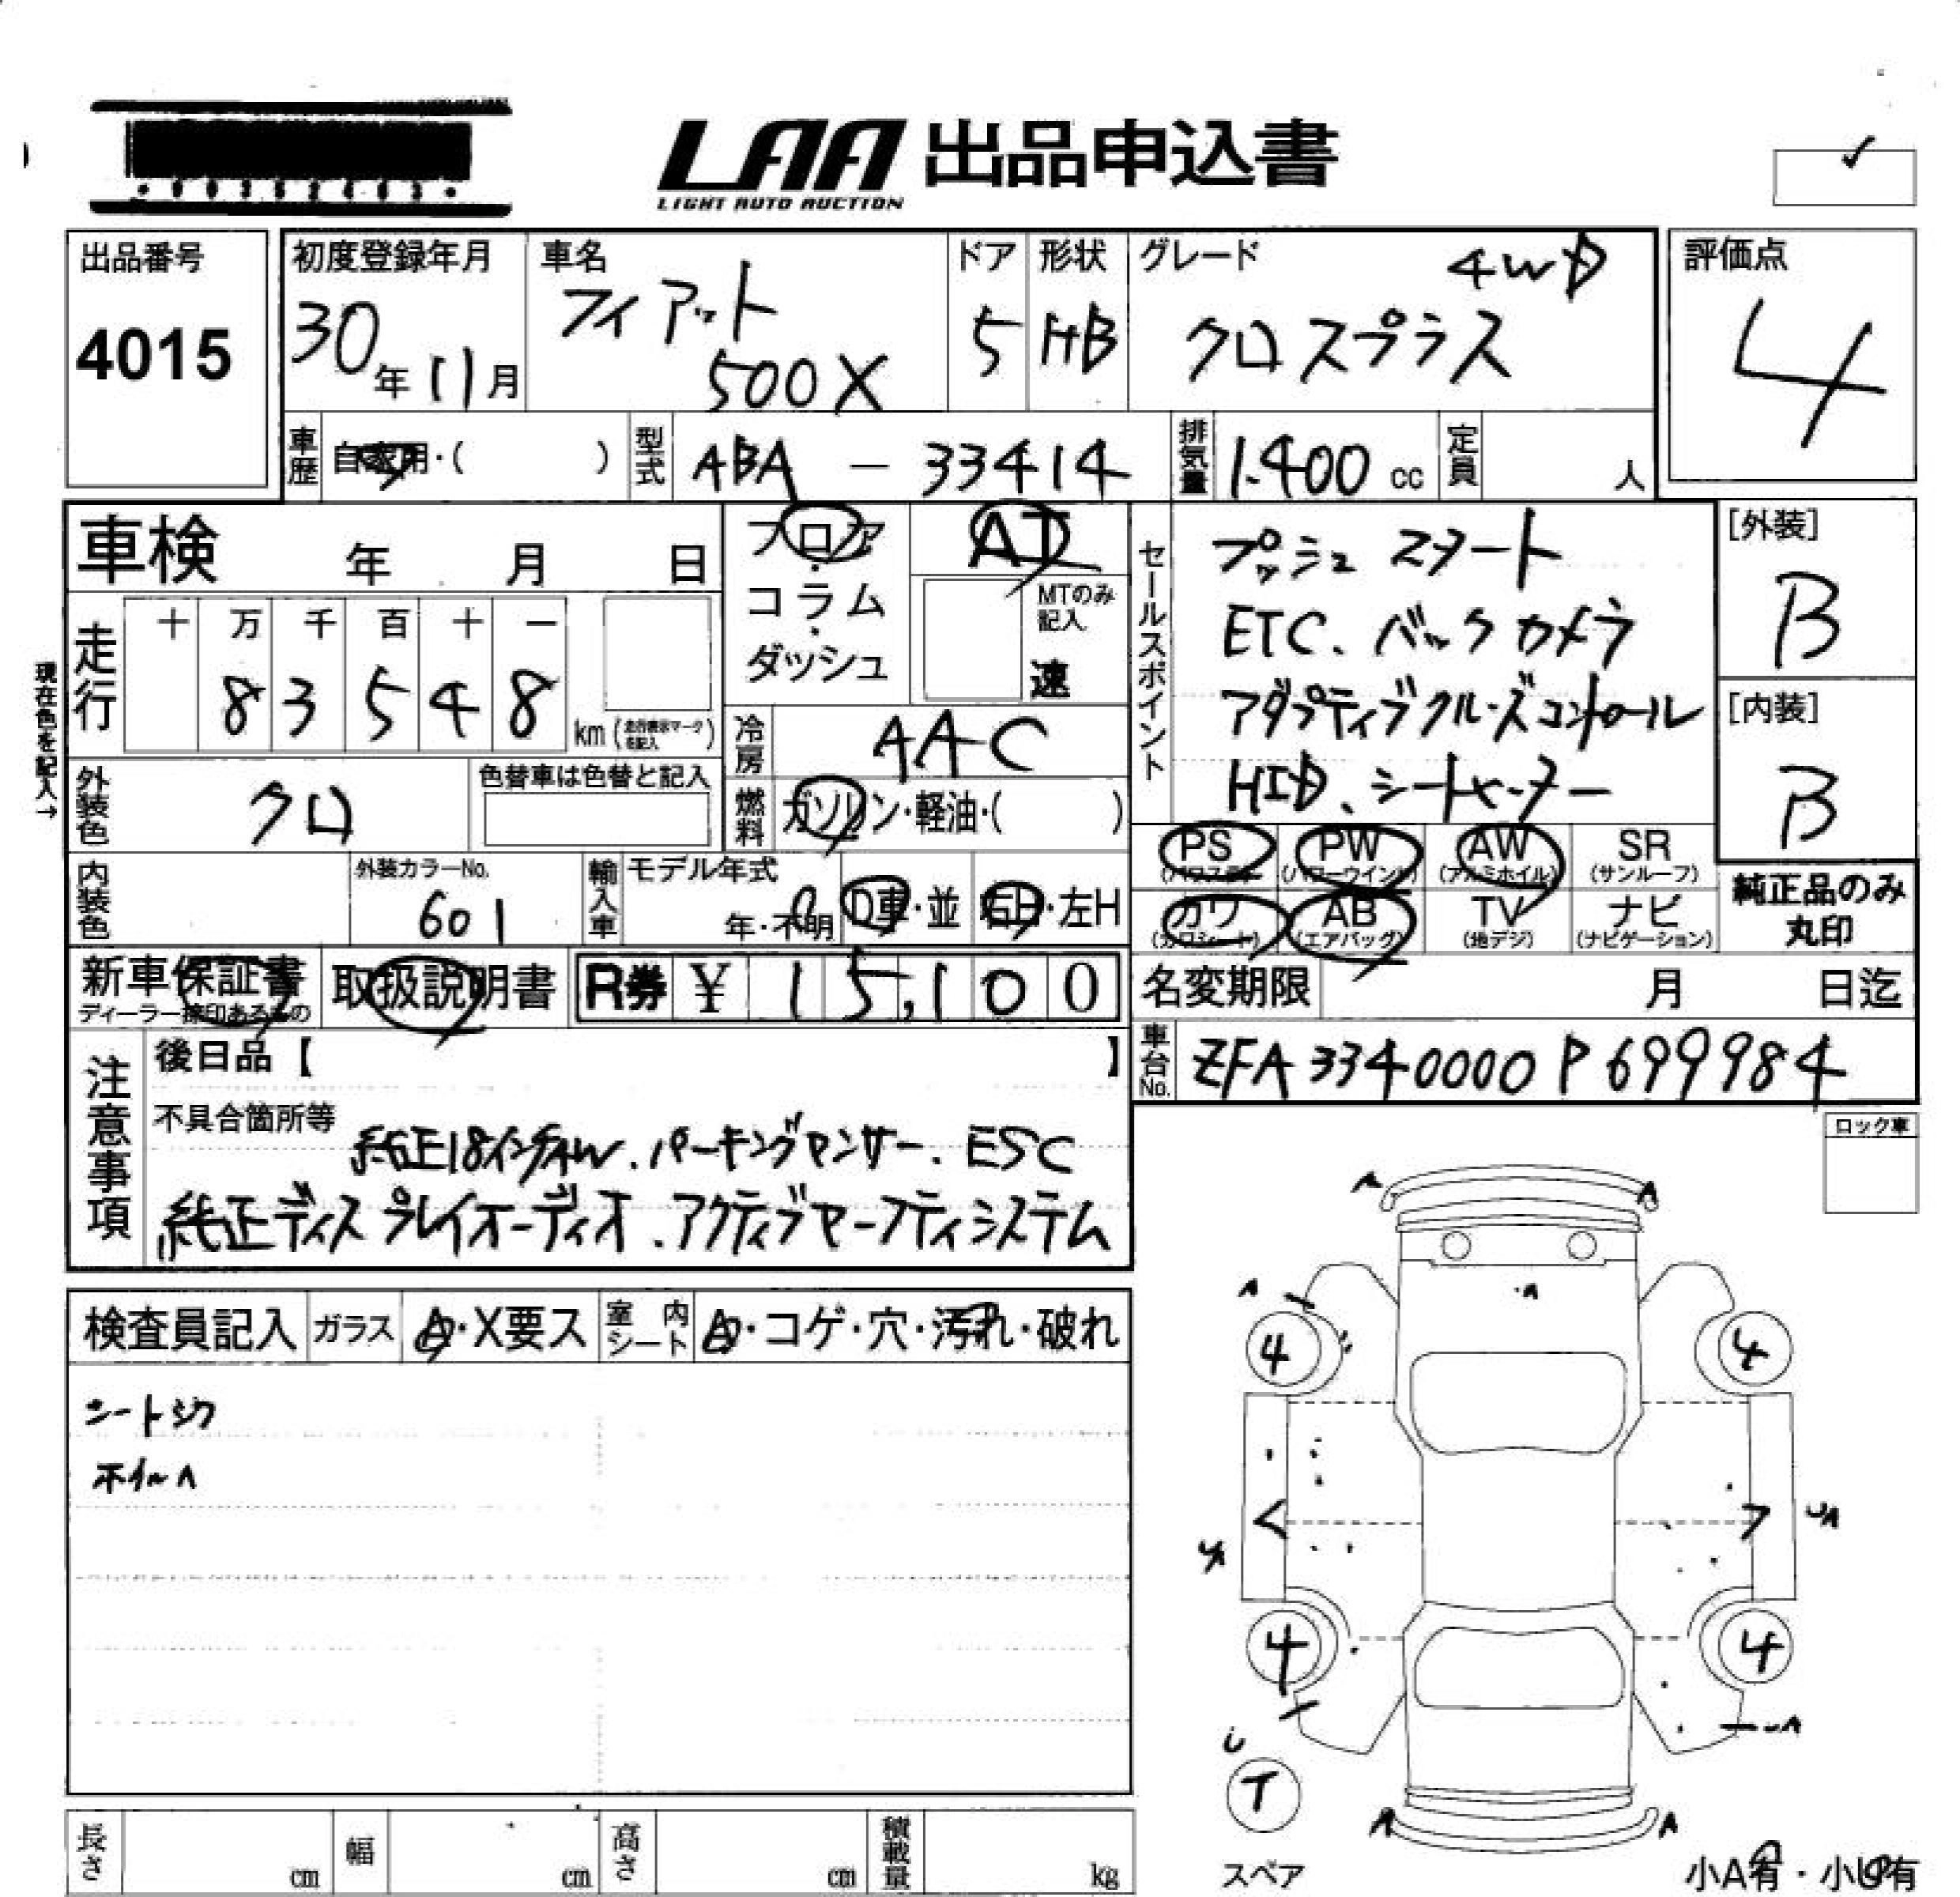 LAA 出品申込書
LIGHT AUTO AUCTION
出品番号
4015
初度登録年月
30年11月
車名
フィアット
500X
ドア
5
形状
HB
グレード
4WD
クロスプラス
評価点
4
車歴 自家用・( )
型式 ABA - 33414
排気量 1.400 cc
定員 人
車検 年 月 日
フロア・コラム・ダッシュ
AT
MTのみ記入
速
セールスポイント
プッシュスタート
ETC、バックカメラ
アダプティブクルーズコントロール
HID、シートヒーター
[外装]
B
[内装]
B
現在色を記入→
走行
十 万 千 百 十 一
8 3 5 4 8
km (走行表示マークを記入)
冷房 AAC
外装色 クロ
色替車は色替と記入
燃料 ガソリン・軽油・( )
PS (パワステ) PW (パワーウインド) AW (アルミホイル) SR (サンルーフ)
カワ (カワシート) AB (エアバッグ) TV (地デジ) ナビ (ナビゲーション)
純正品のみ
丸印
内装色
外装カラーNo.
601
輸入車
モデル年式
年・不明
D車・並
右H・左H
新車保証書
ディーラー捺印あるもの
取扱説明書
R券 ¥ 15,100
名変期限 月 日迄
車台No. ZFA3340000P699984
注意事項
後日品【 】
不具合箇所等
純正18インチAW、パーキングセンサー、ESC
純正ディスプレイオーディオ、アクティブセーフティシステム
ロック車
検査員記入
ガラス A・X要ス
室内シート
・コゲ・穴・汚れ・破れ
シートシワ
ホイールA
A A
A
A
4 4
UA
4 4
U
UA
T
スペア
A A
長さ cm
幅 cm
高さ cm
積載量 kg
小A有・小U有